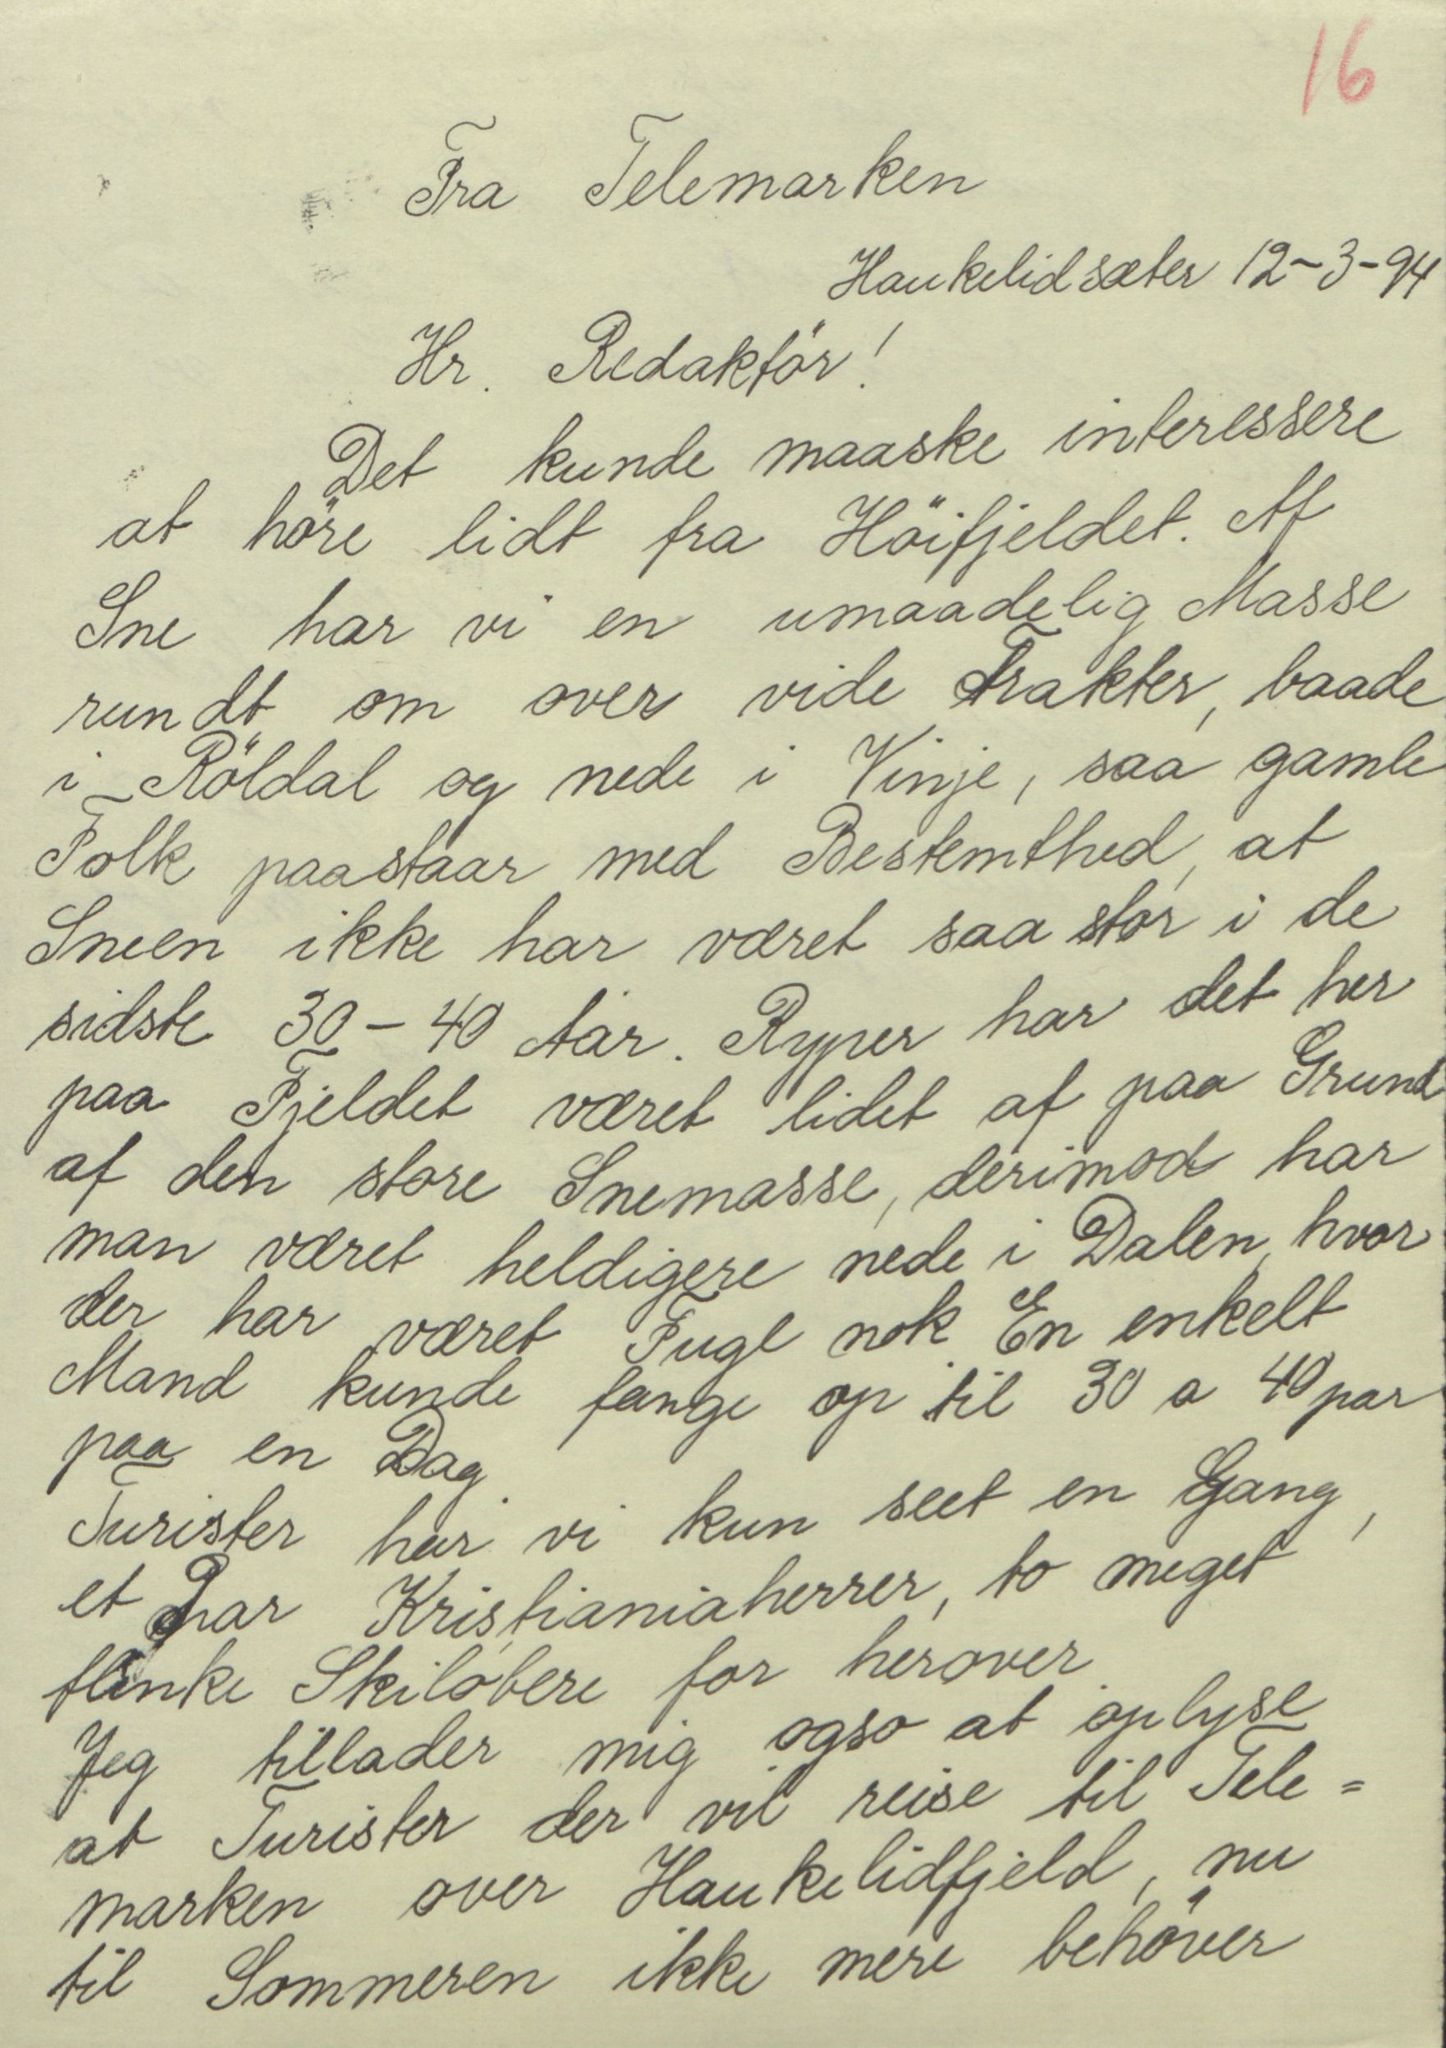 16
Fra Telemarken
Haukelidsæter 12-3-94
Hr. Redaktör!
Det kunde maaske interessere
at höre lidt fra Höifjeldet. Af
Sne har vi en umaadelig Masse
rundt om over vide Trakter, baade
i Röldal og nede i Vinje, saa gamle
Folk paastaar med Bestemthed, at
Sneen ikke har været saa stor i de
sidste 30-40 Aar. Ryper har det her
paa Fjeldet været lidet af paa Grund
af den store Snemasse, derimod har
man været heldigere nede i Dalen, hvor
der har været Fugl nok En enkelt
Mand kunde fange op til 30 a 40 par
paa en Dag
Turister har vi kun seet en Gang,
et Par Kristianiaherrer, to meget
flinke Skilöbere for herover
Jeg tillader mig ogso at oplyse
at Turister der vil reise til Tele=
marken over Haukelidfjeld, nu
til Sommeren ikke mere behöver